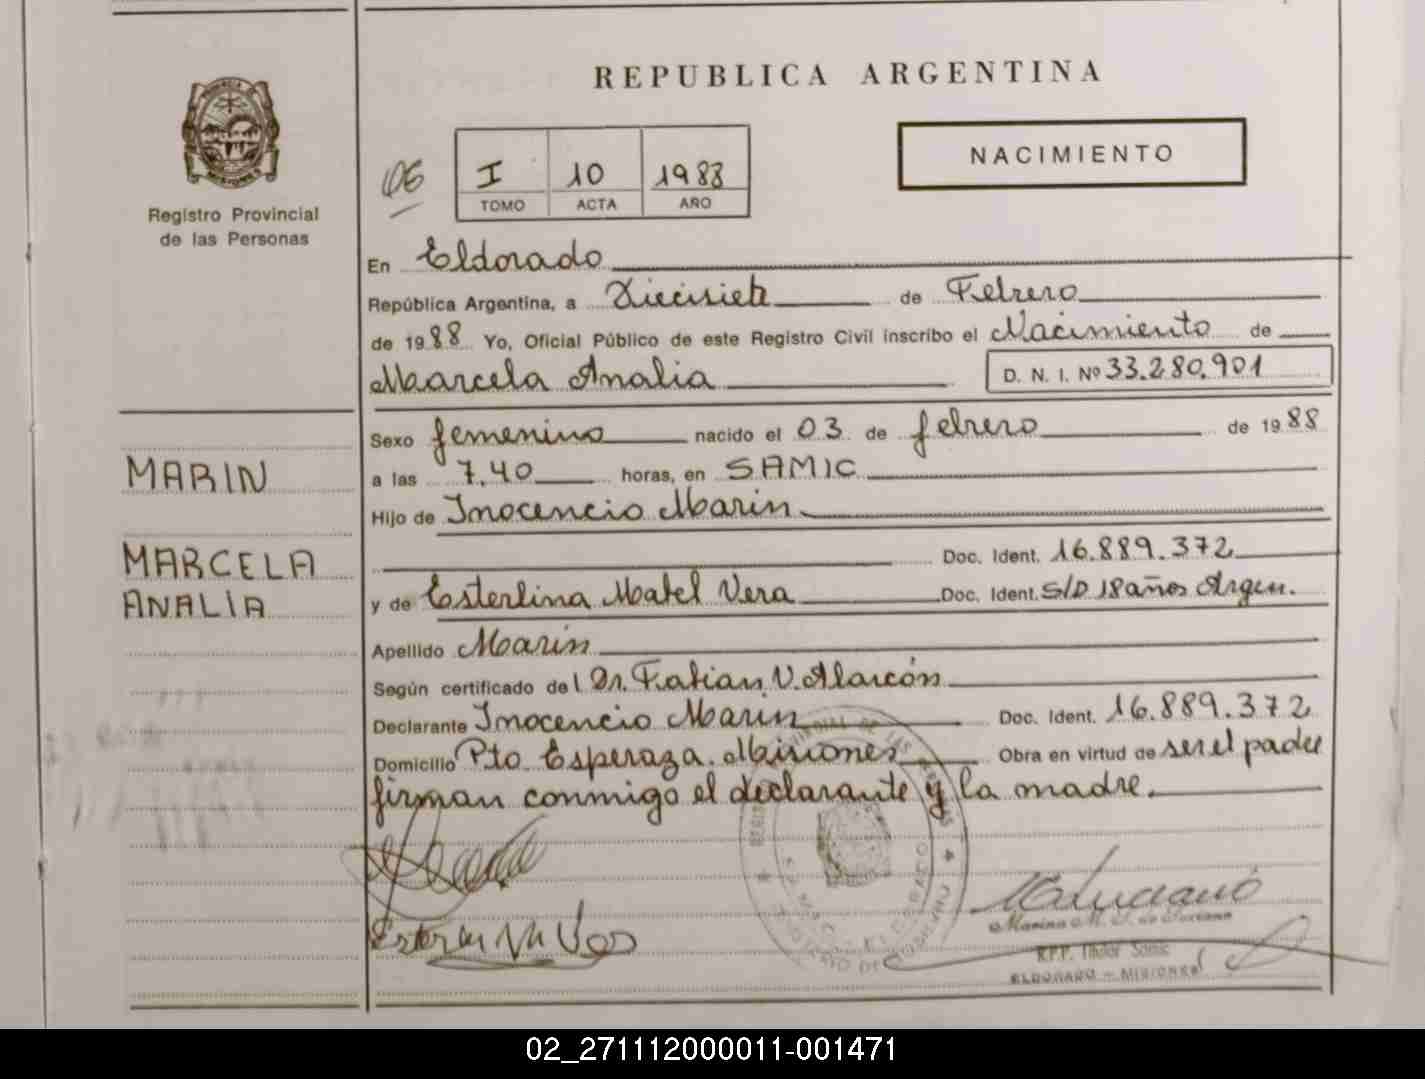 REPUBLICA ARGENTINA
PROVINCIA DE MISIONES
Registro Provincial
de las Personas
06
I 10 1988
TOMO ACTA AÑO
NACIMIENTO
En Eldorado
República Argentina, a Diecisiete de Febrero
de 1988 Yo, Oficial Público de este Registro Civil inscribo el Nacimiento de
Marcela Analia D. N. I. Nº 33.280.901
Sexo femenino nacido el 03 de febrero de 1988
MARIN
a las 7,40 horas, en SAMIC
Hijo de Inocencio Marin
MARCELA
Doc. Ident. 16.889.372
ANALIA
y de Esterlina Mabel Vera Doc. Ident. S/D 18 años Argen.
Apellido Marin
Según certificado del Dr. Fabian V. Alarcón
Declarante Inocencio Marin Doc. Ident. 16.889.372
Domicilio Pto Esperaza. Misiones Obra en virtud de ser el padre
firman conmigo el declarante y la madre.
R.P.P. Titular Samic
ELDORADO - MISIONES
02_271112000011-001471